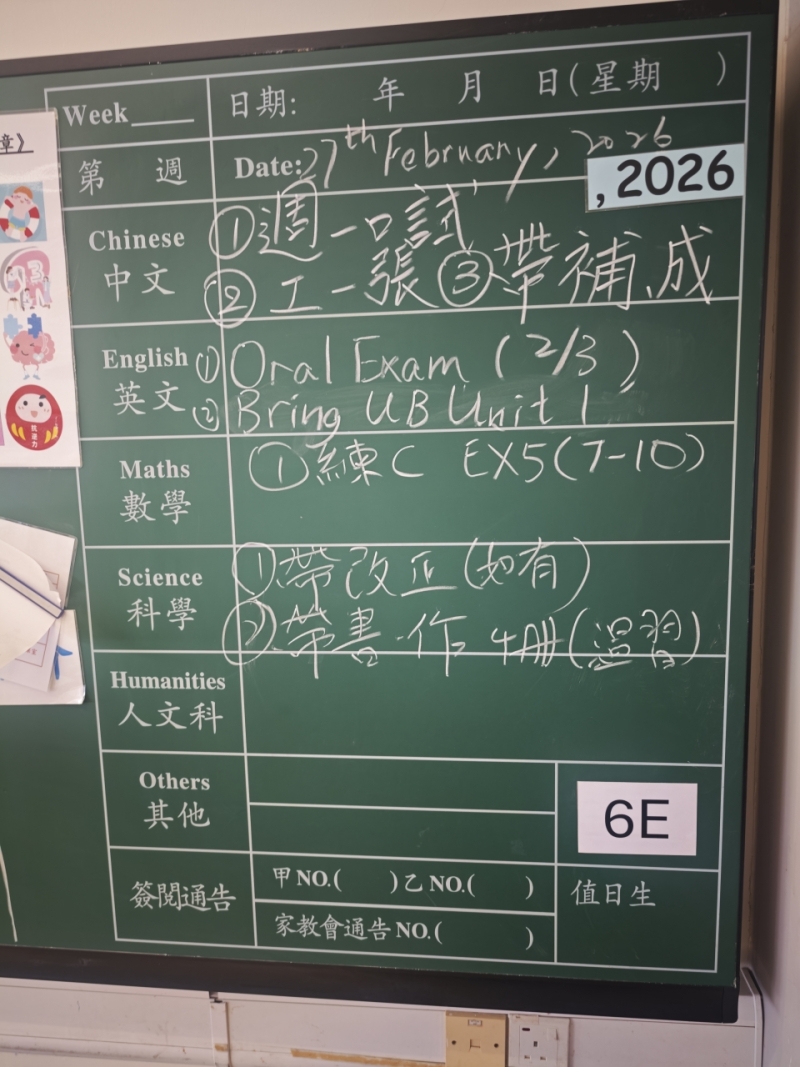 章》
Week____ 日期: 年 月 日(星期 )
第 週 Date: 27th February, 2026
, 2026
Chinese 中文
①週一口試
②工一張 ③帶補、成
English 英文
① Oral Exam (2/3)
② Bring UB Unit 1
Maths 數學
① 練C EX5(7-10)
Science 科學
① 帶改正(如有)
② 帶書、作 4冊(溫習)
Humanities 人文科
Others 其他
6E
簽閱通告 甲NO.( )乙NO.( ) 值日生
家教會通告NO.( )